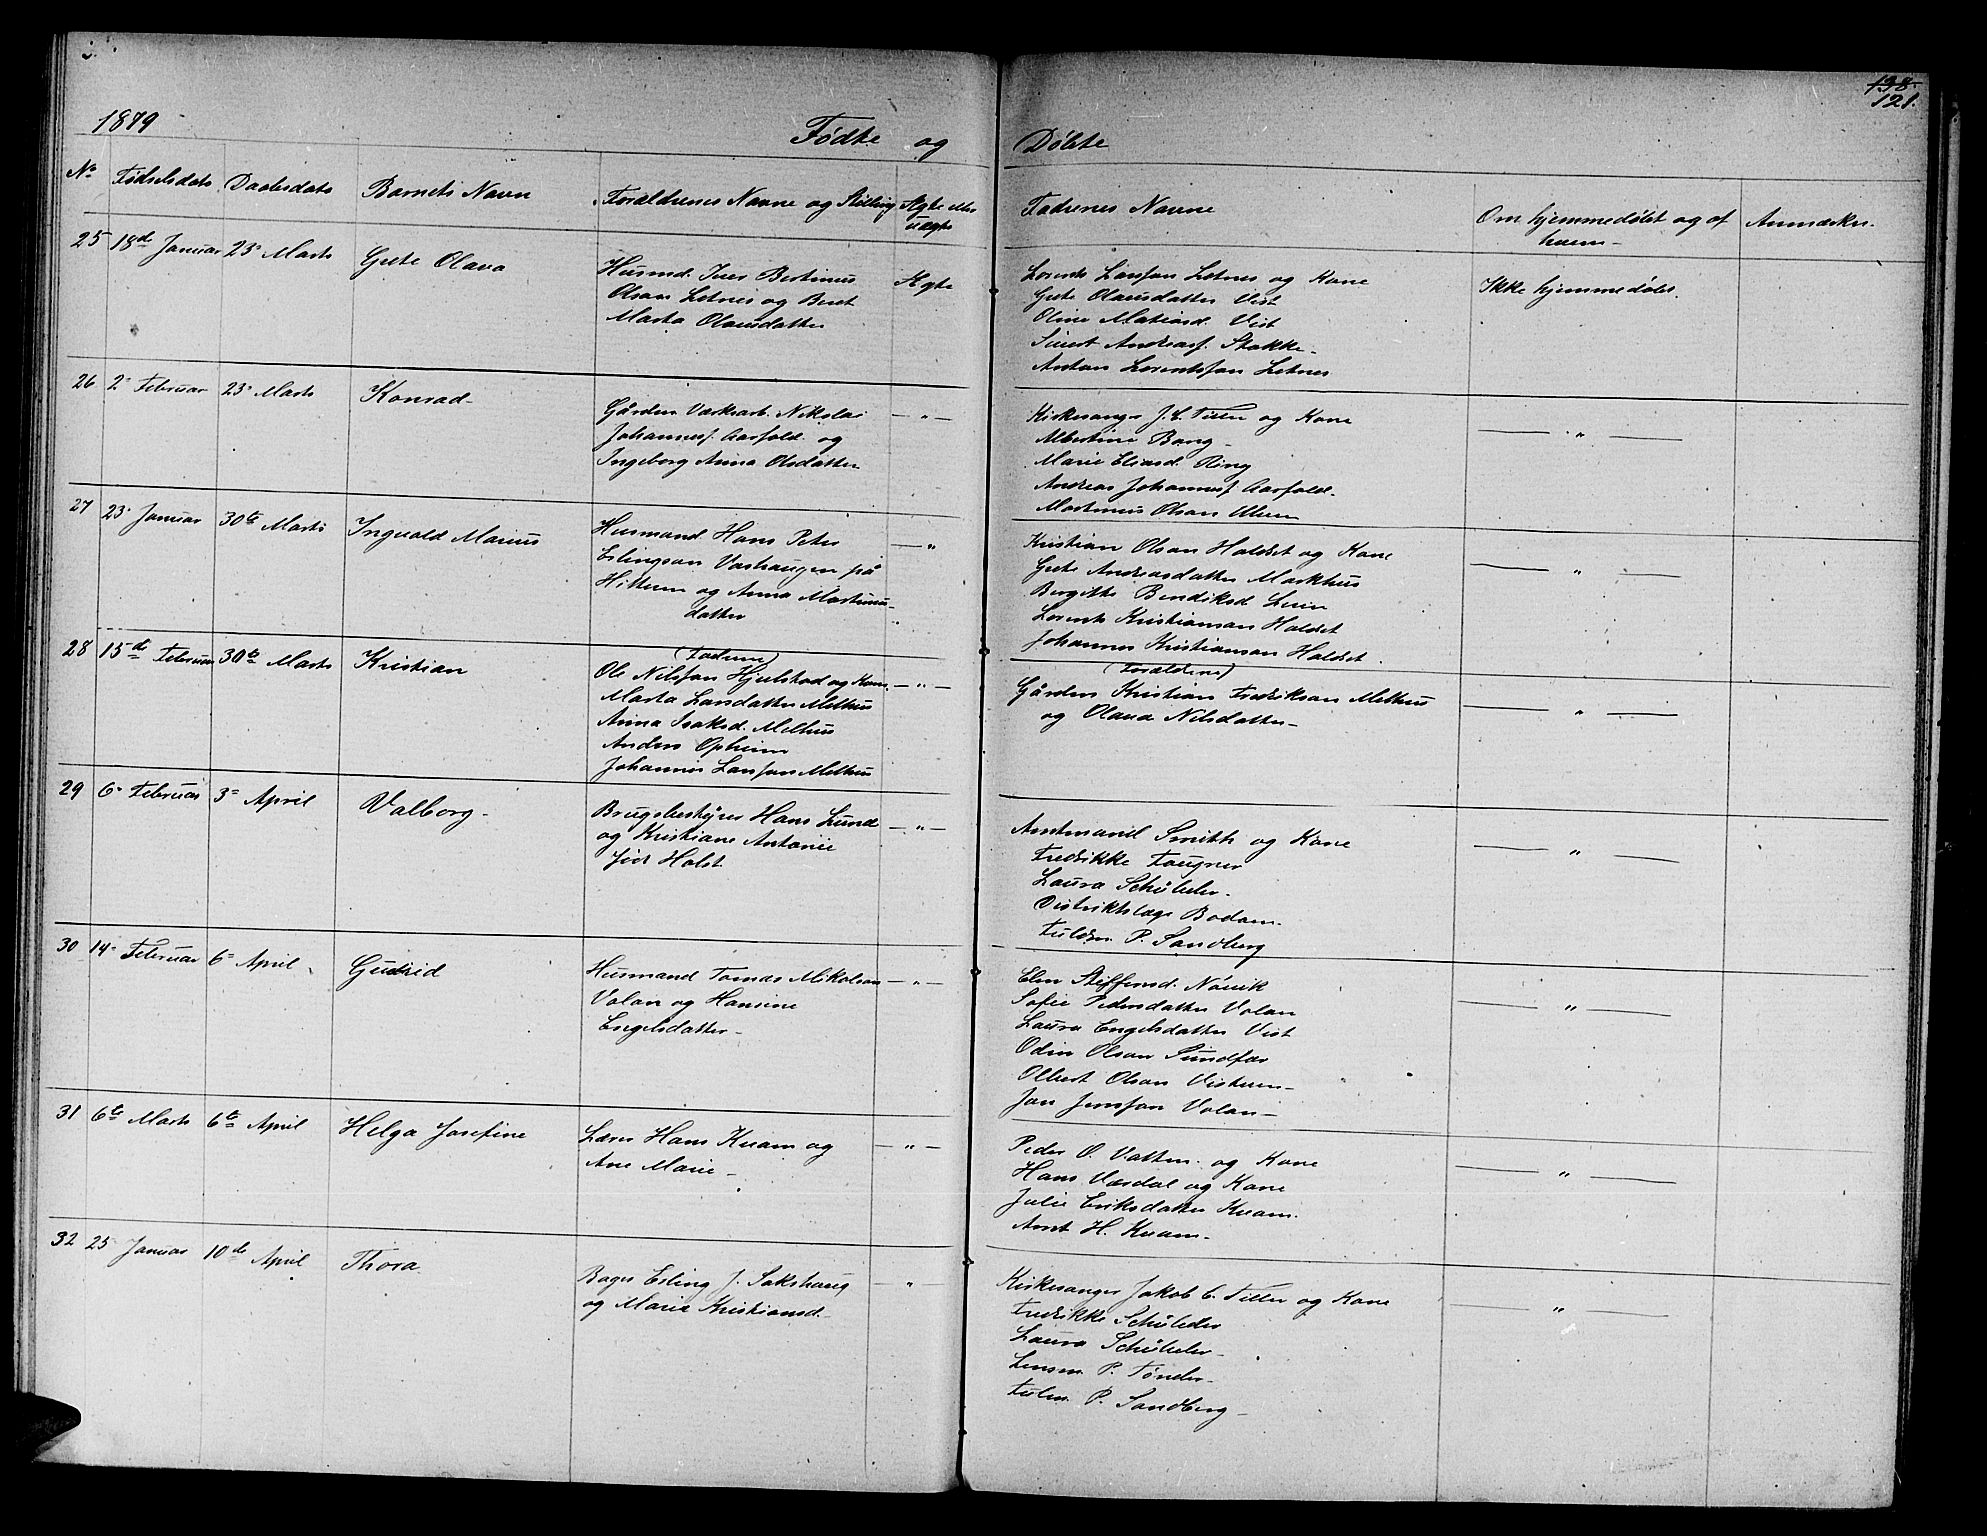 138.
121.
1879
Fødte og Døbte
No
Fødselsdato
Daabsdato
Barnets Navn
Forældrenes Navne og Stilling
Ægte eller
uægte
Fadrenes Navne
Om hjemmedøbt og af
hvem
Anmærkn.
25 18de Januar 23' Marts Grete Olava
Husmd. Iver Bertinus
Olsan Letnes og Beret
Marta Olausdatter
Ægte
Lorents Larsſan Letnes og Kone
Grete Olausdatter Vist
Oline Matiasd. Vist
Sivert Andreasſ. Stokke
Anton Lorentsſan Letnes
Ikke hjemmedøbt.
26 2' Februar 23' Marts Konrad
Gården Værksarb. Nikolai
Johannesſ. Aarfold og
Ingeborg Anna Olsdatter
— " —
Kirkesanger J. C. Tiller og Kone
Albertine Bang
Marie Eliasd. Ring
Andreas Johannesſ. Aarfold
Martinus Olsan
— " —
27 23' Januar 30te Marts Ingvald Marius
Husmand Hans Peter
Erlingsan Vashaugen på
Hittern og Anna Martinus-
datter
— "
Kristian Olsan Haldset og Kone
Grete Andreasdatter Markhus
Birgitte Bendiksd. Lein
Lorents Kristiansan Haldset
Johannes Kristiansan Haldset
— " —
28 15de Februar 30te Marts Kristian
(Faderne)
Ole Nilsſan Hjelstad og Kone
Marta Larsdatter Melhus
Anna Isaksd. Melhus
Anders Opheim
Johannes Larsſan Melhus
— " —
(Forældrene)
Gårdm Kristian Fredriksan Melhus
og Olava Nilsdatter
— " —
29 6' Februar 3' April Valborg
Brugsbestyrer Hans Lund
og Kristiane Antonie
fød Holst
— " —
Amtmand Smith og Kone
Fredrikke Faugner
Laura Schüleler
Distriktslæge Bodam
Fuldm. P. Sandberg
— " —
30 14' Februar 6' April Gudrid
Husmand Tomas Mikalsan
Volan og Hansine
Engelsdatter
— " —
Elen Steffensd. Nõvik
Sofie Pedersdatter Volan
Laura Engelsdatter Vist
Odin Olsan Sundfær
Olbert Olsan Visteren
Jon Jensſan Volan
— " —
31 6te Marts 6te April Helga Josefine
Lærer Hans Kvam og
Ane Marie
— " —
Peder O. Vatten og Kone
Hans Værdal og Kone
Julie Eriksdatter Kvam
Arnt H. Kvam
— " —
32 25 Januar 10de April Thora
Bager Erling J. Sakshaug
og Marie Kristiansd.
— " —
Kirkesanger Jakob C. Tiller og Kone
Fredrikke Schüleler
Laura Schüleler
Lensm. P. Tønder
Fulm. P. Sandberg
— " —